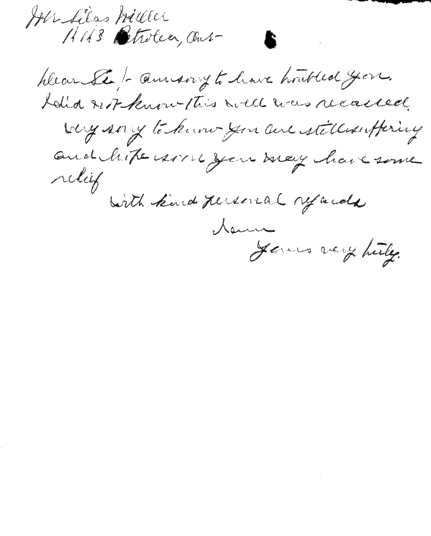 Mr Silas Miller
RR3 Petrolea, Ont
Dear Sir :- am sorry to have troubled you.
I did not know this well was recassed.
very sorry to know you are still suffering
and hope soon you may have some
relief
with kind personal regards
Yours very truly.